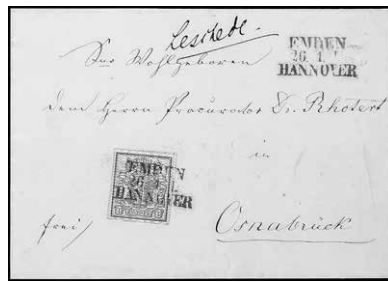 Leschede.
EMDEN
26. 1.
HANNOVER
Sr. Wohlgeboren
dem Herrn Procurator Dr. Rhotert
in
EMDEN
26. 1.
HANNOVER
frei
Osnabrück